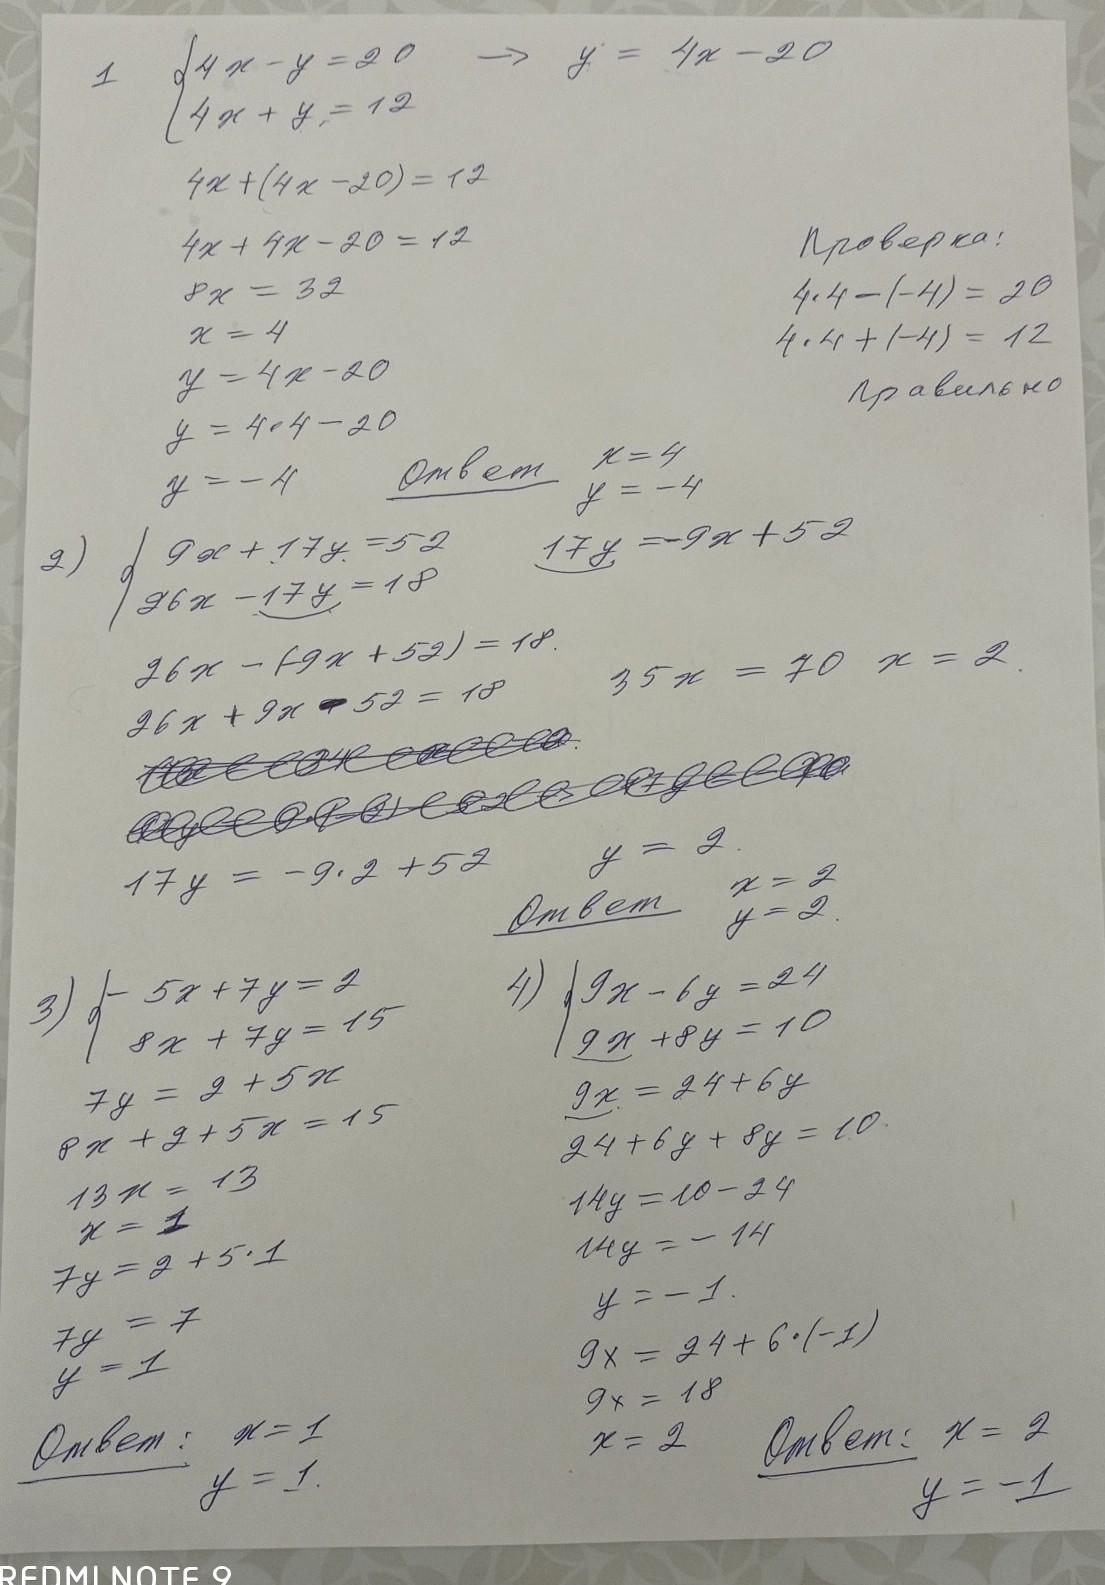 1 {4x - y = 20 → y = 4x - 20
4x + y = 12
4x + (4x - 20) = 12
4x + 4x - 20 = 12
8x = 32
x = 4
y = 4x - 20
y = 4·4 - 20
y = -4
Проверка:
4·4 - (-4) = 20
4·4 + (-4) = 12
Правильно
Ответ x = 4
y = -4
2) {9x + 17y = 52 17y = -9x + 52
26x - 17y = 18
26x - (-9x + 52) = 18.
26x + 9x - 52 = 18 35x = 70 x = 2.
17y = -9·2 + 52 y = 2.
Ответ x = 2
y = 2.
3) {- 5x + 7y = 2
8x + 7y = 15
7y = 2 + 5x
8x + 2 + 5x = 15
13x = 13
x = 1
7y = 2 + 5·1
7y = 7
y = 1
Ответ: x = 1
y = 1.
4) {9x - 6y = 24
9x + 8y = 10
9x = 24 + 6y
24 + 6y + 8y = 10.
14y = 10 - 24
14y = -14
y = -1.
9x = 24 + 6·(-1)
9x = 18
x = 2
Ответ: x = 2
y = -1
REDMI NOTE 9